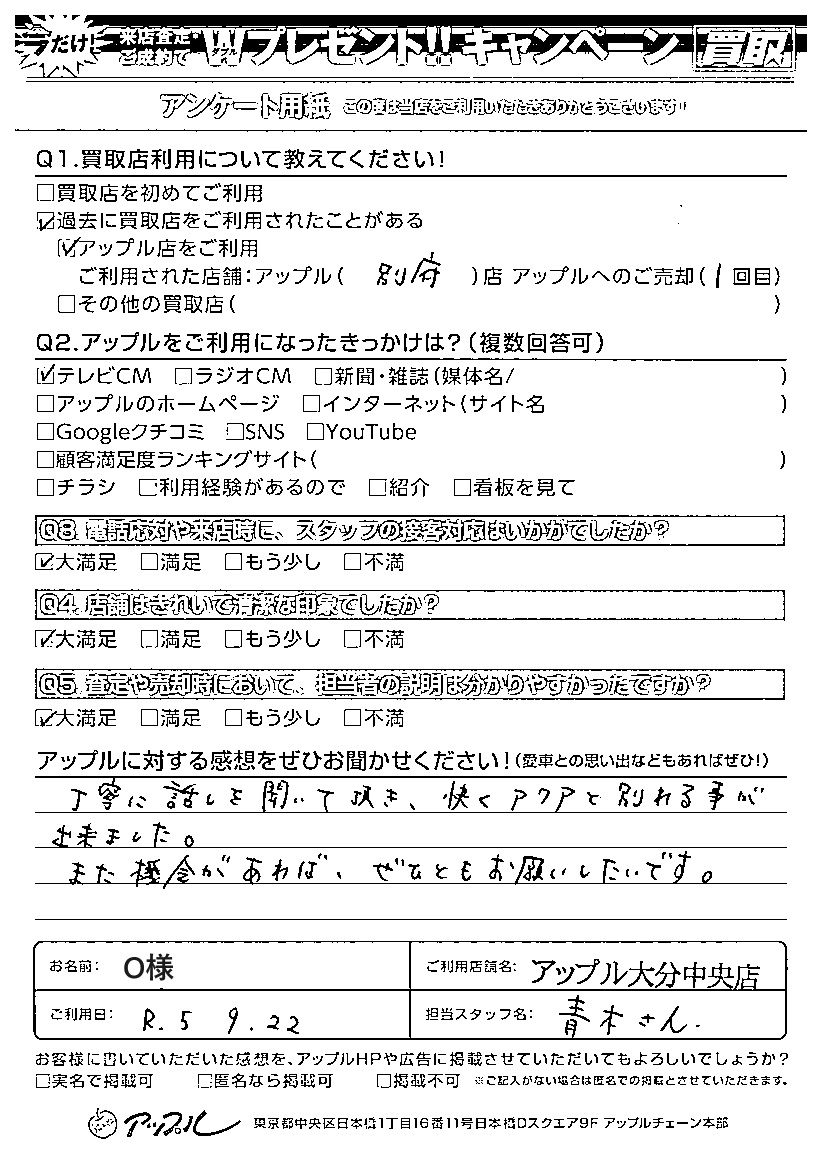 今だけ! 来店査定・ご成約で W ダブル プレゼント!! キャンペーン 買取
アンケート用紙 この度は当店をご利用いただきありがとうございます!
Q1.買取店利用について教えてください!
□買取店を初めてご利用
☑過去に買取店をご利用されたことがある
☑アップル店をご利用
ご利用された店舗:アップル( 別府 )店 アップルへのご売却( 1 回目)
□その他の買取店( )
Q2.アップルをご利用になったきっかけは?(複数回答可)
☑テレビCM □ラジオCM □新聞・雑誌(媒体名/ )
□アップルのホームページ □インターネット(サイト名 )
□Googleクチコミ □SNS □YouTube
□顧客満足度ランキングサイト( )
□チラシ □利用経験があるので □紹介 □看板を見て
Q3. 電話応対や来店時に、スタッフの接客対応はいかがでしたか?
☑大満足 □満足 □もう少し □不満
Q4. 店舗はきれいで清潔な印象でしたか?
☑大満足 □満足 □もう少し □不満
Q5. 査定や売却時において、担当者の説明は分かりやすかったですか?
☑大満足 □満足 □もう少し □不満
アップルに対する感想をぜひお聞かせください!(愛車との思い出などもあればぜひ!)
丁寧に話しを聞いて頂き、快くアクアと別れる事が
出来ました。
また機会があれば、ぜひともお願いしたいです。
お名前: O様 ご利用店舗名: アップル大分中央店
ご利用日: R.5 9.22 担当スタッフ名: 青木さん.
お客様に書いていただいた感想を、アップルHPや広告に掲載させていただいてもよろしいでしょうか?
□実名で掲載可 □匿名なら掲載可 □掲載不可 ※ご記入がない場合は匿名での掲載とさせていただきます。
アップル 東京都中央区日本橋1丁目16番11号日本橋Dスクエア9F アップルチェーン本部